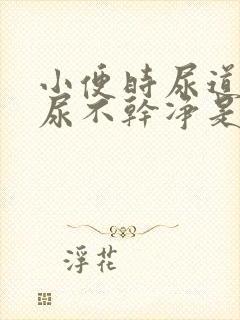 小便時尿道
尿不幹凈是
浮花